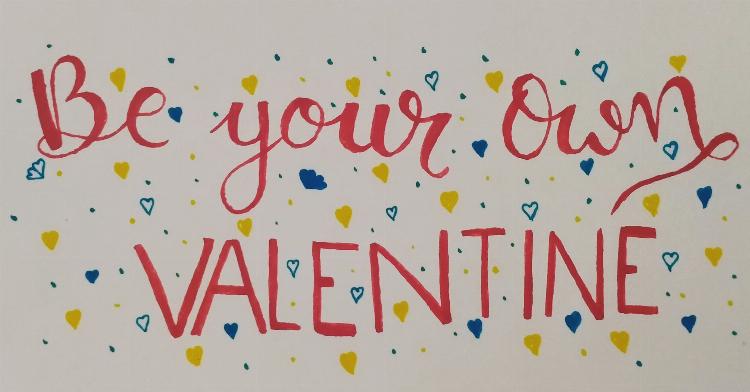 Be your Own
VALENTINE